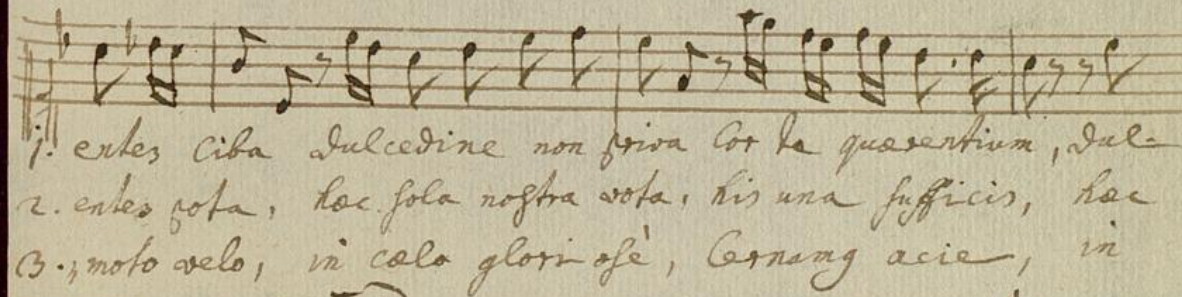 1. entes Ciba dulcedine non priva Cor te quærentium, dul=
2. entes pota, hæc sola nostra vota, his una sufficis, hæc
3. moto velo, in cælo gloriose, Cernamq acie, in